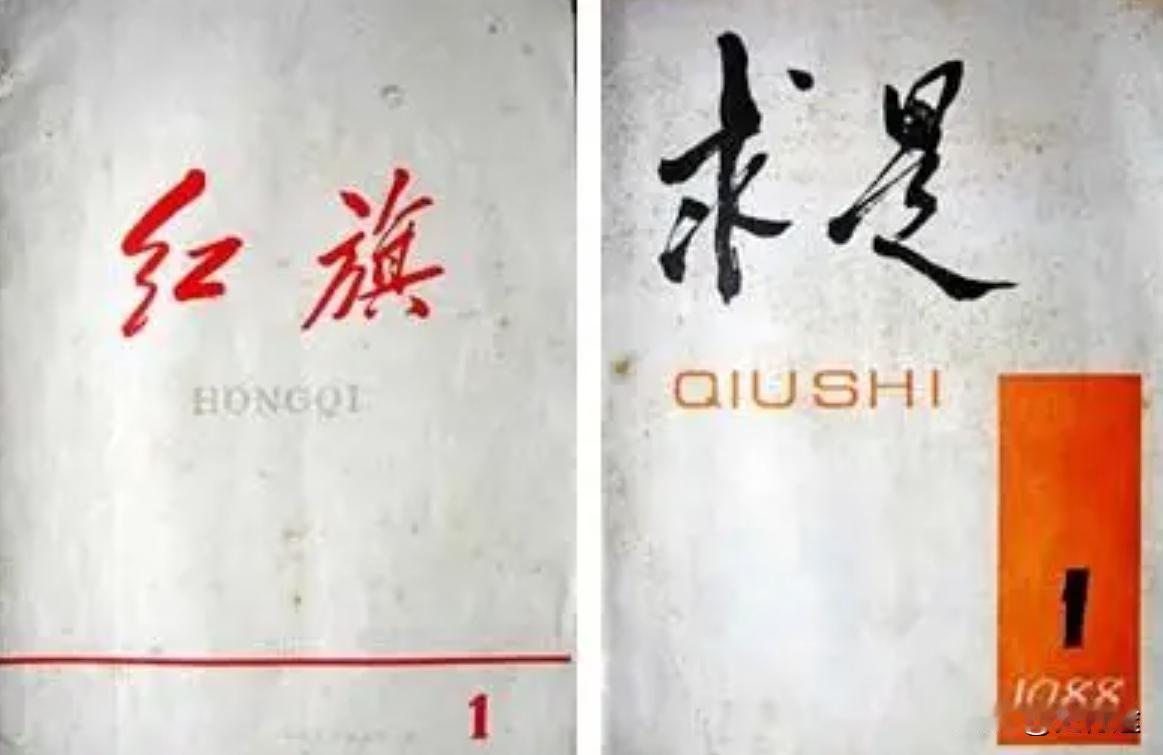 红旗
HONGQI
1
求是
QIUSHI
1
1988